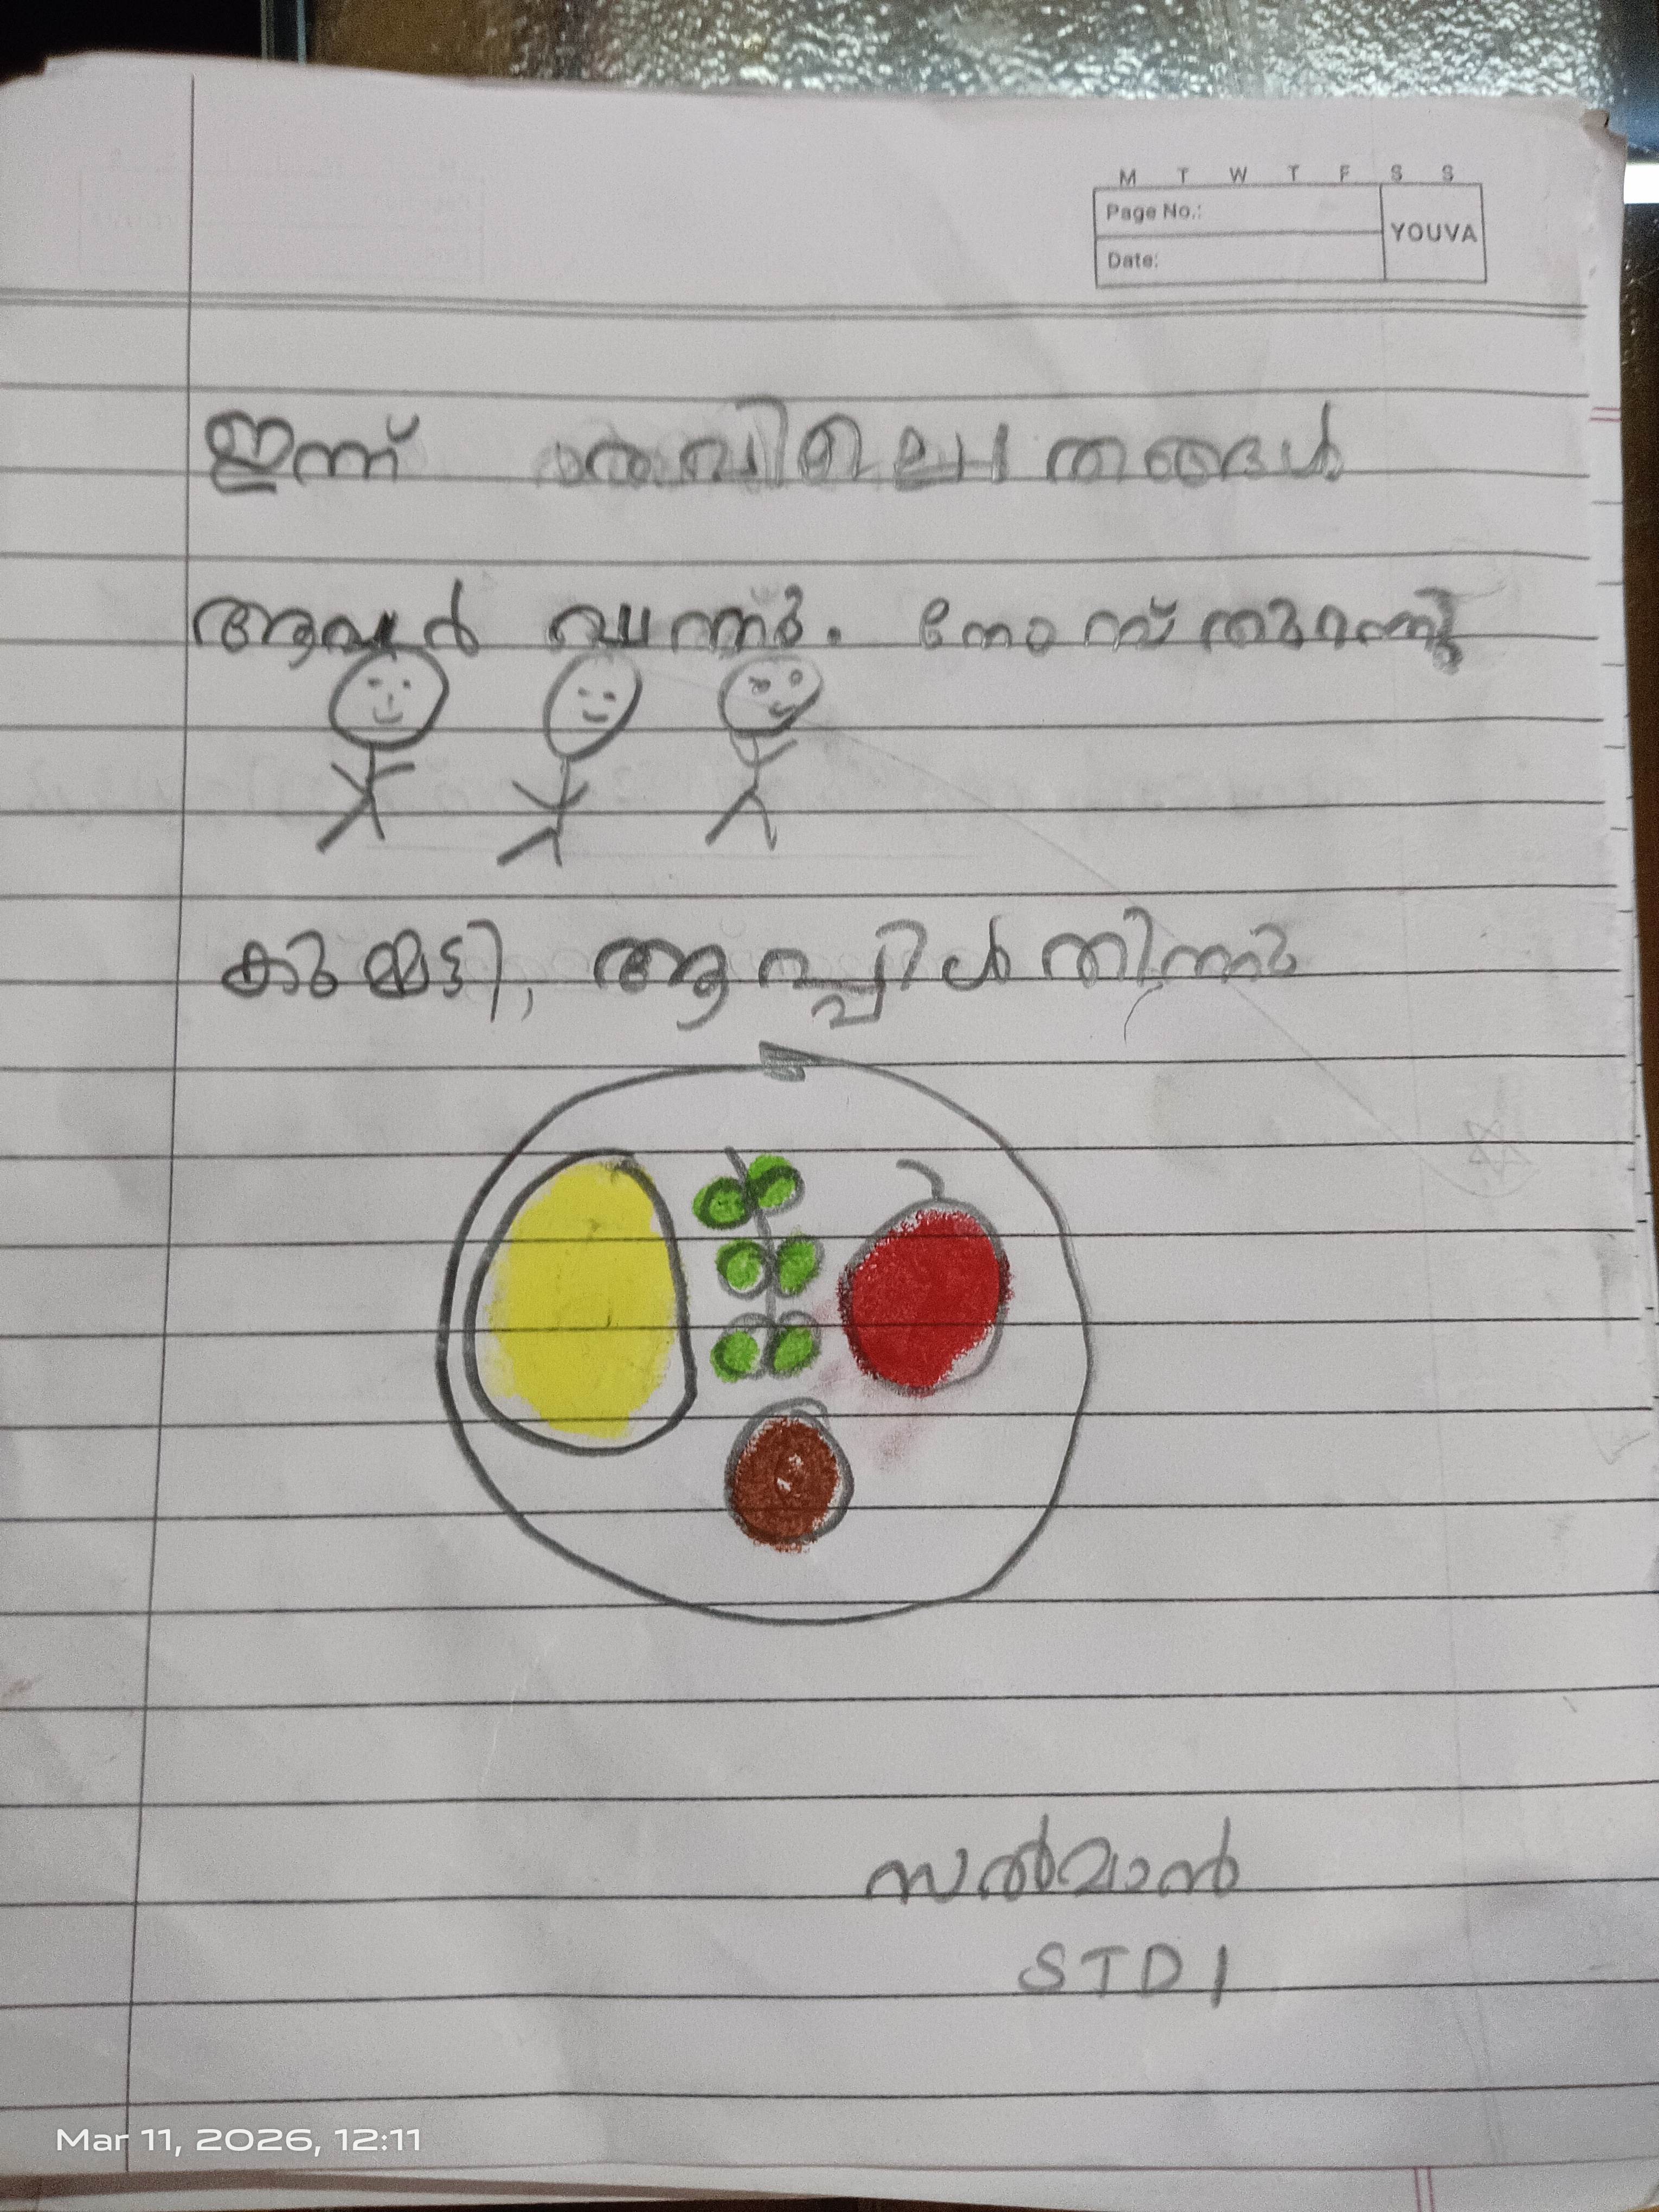 M T W T F S S
Page No.:
YOUVA
Date:
ഇന്ന് തങ്ങൾ
ആവർ വന്നു. നോമ്പ് തുറന്നു
കുമ്മട്ടി, ആപ്പിൾ തിന്നു
സൽമാൻ
STD 1
Mar 11, 2026, 12:11